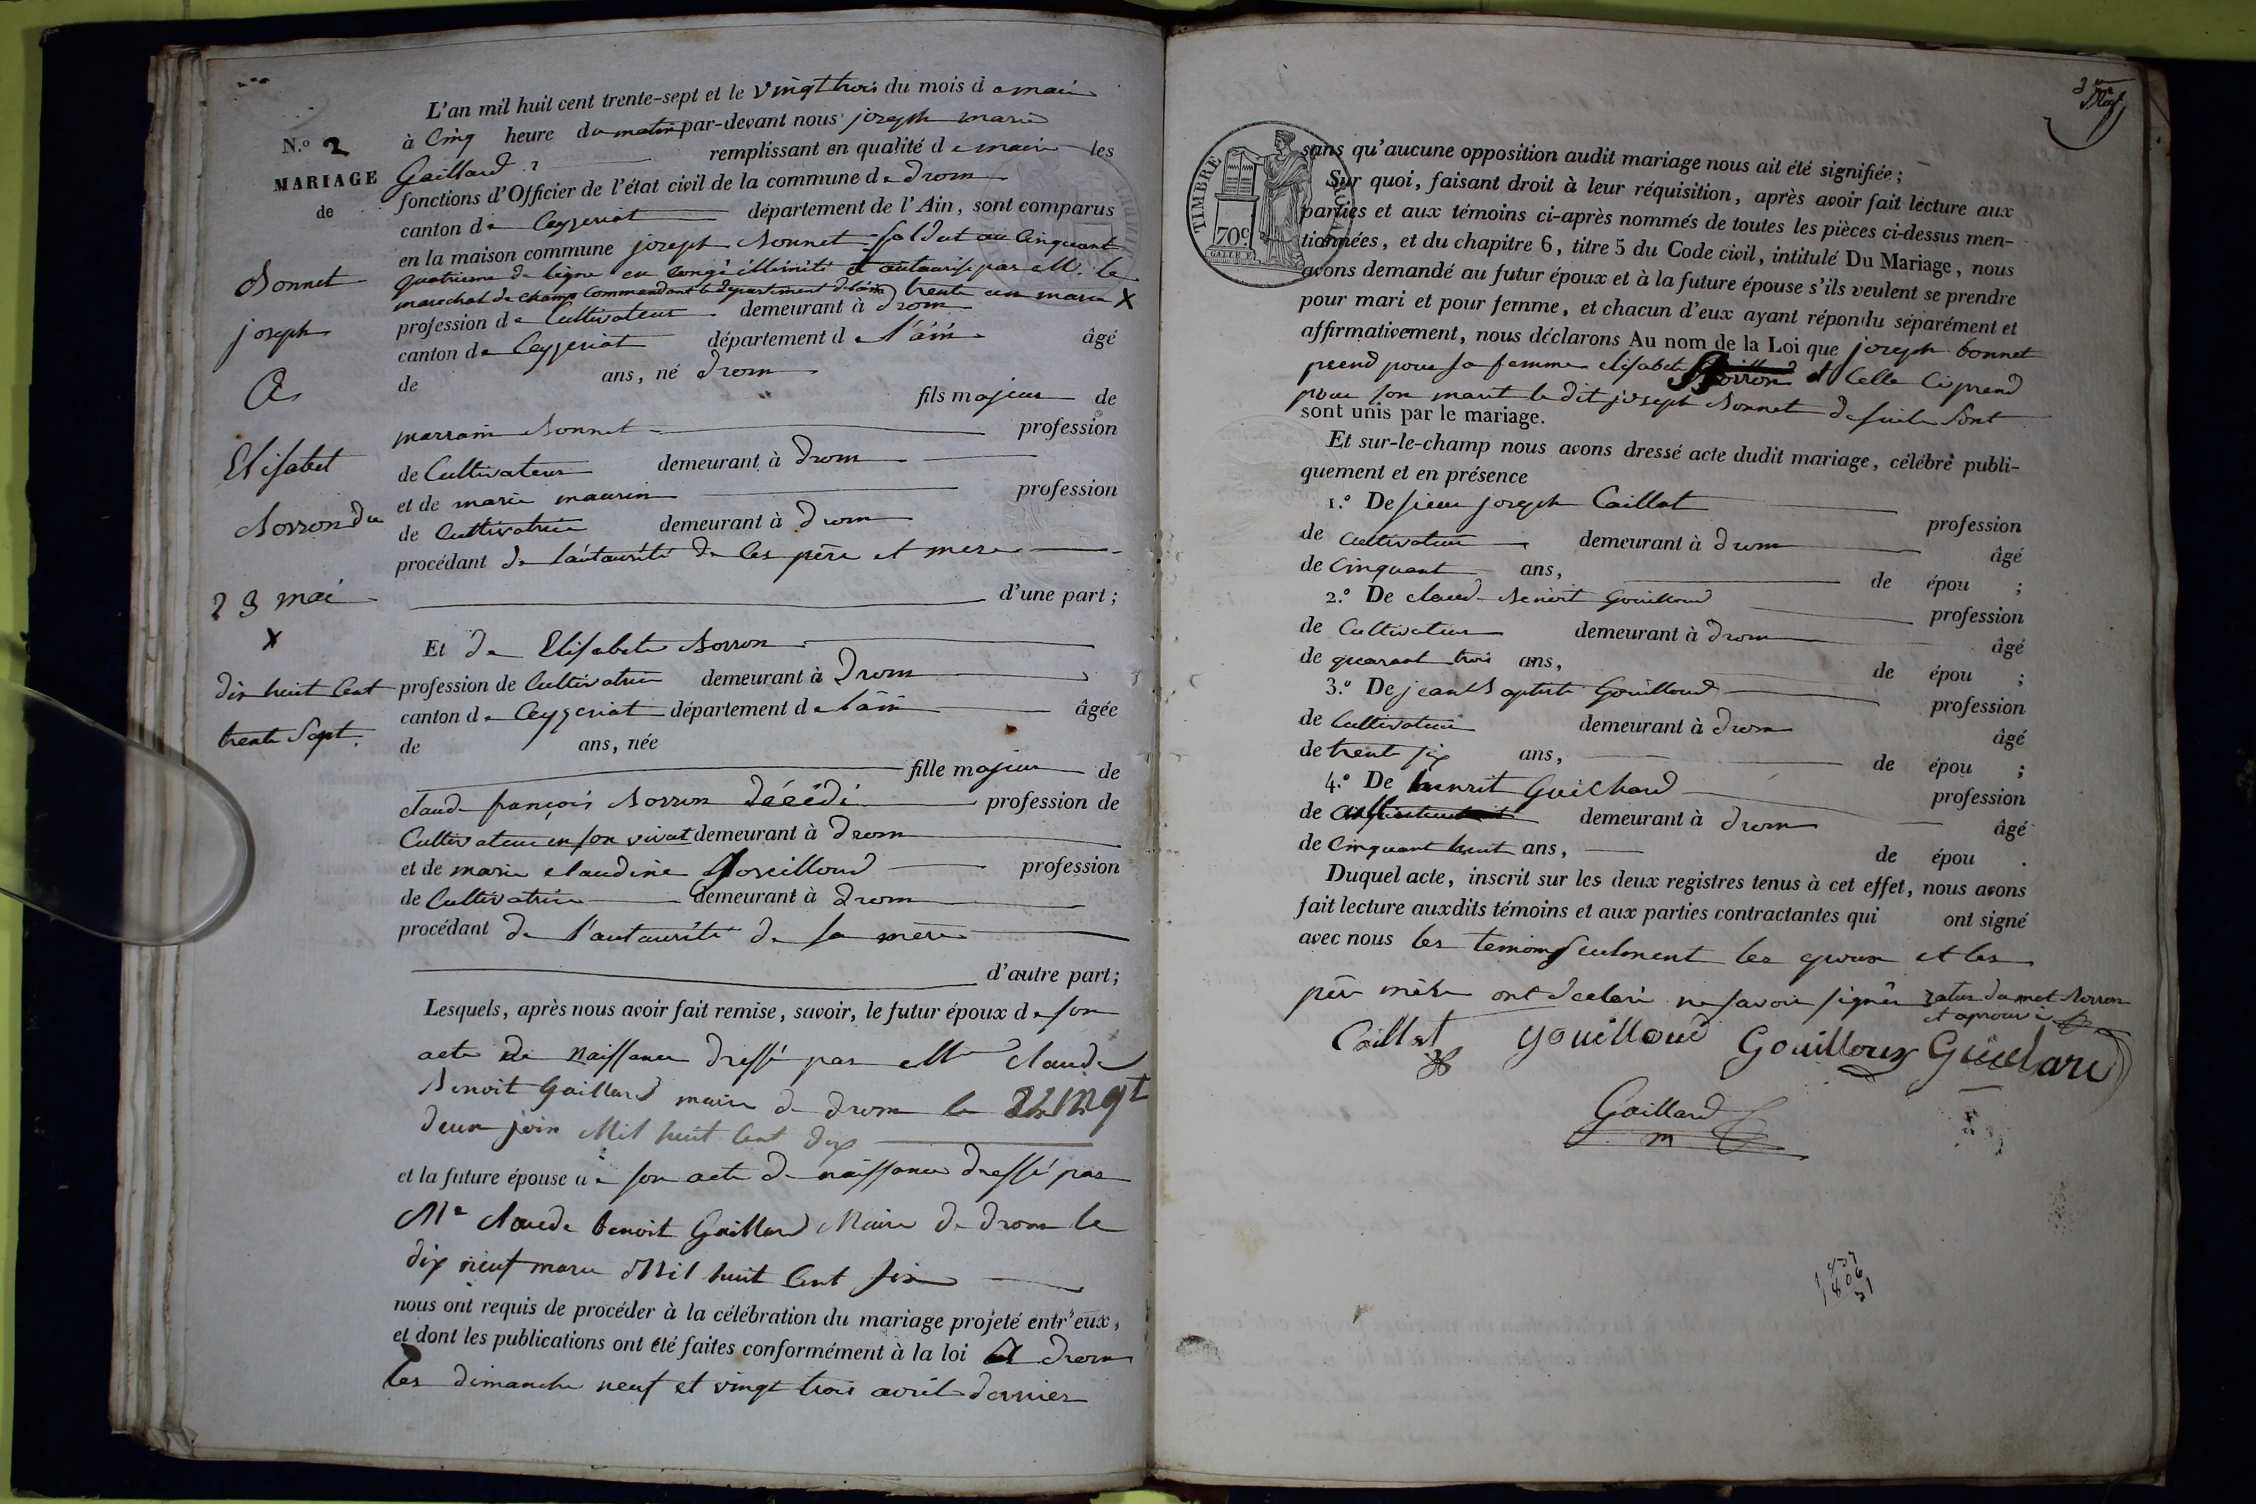 N.º 2
MARIAGE
de
Bonnet
joseph
&
Elisabet
Borron du
23 mai
X
dix huit cent
trente Sept.
L'an mil huit cent trente-sept et le vingt trois du mois de mai
à Cinq heure du matin par-devant nous joseph marie
Gaillard remplissant en qualité de maire les
fonctions d'Officier de l'état civil de la commune de drom
canton de Ceyzeriat département de l'Ain, sont comparus
en la maison commune joseph Bonnet soldat au Cinquant
quatrieme de ligne en congé illimité et autaurisé par M. le
marechal de champ Commandant le departement de lain trente un mars X
profession de Cultivateur demeurant à drom
canton de Ceyzeriat département de l'ain âgé
de ans, né drom
fils majeur de
marrain Bonnet profession
de Cultivateur demeurant à drom
et de marie maurin profession
de Cultivatrice demeurant à drom
procédant de l'autaurité de ces père et mere
d'une part;
Et de Elisabete Borron
profession de Cultivatrice demeurant à Drom
canton de Ceyzeriat département de l'ain âgée
de ans, née
fille majeur de
claude françois Borron décédé profession de
Cultivateur en son vivat demeurant à drom
et de marie claudine profession
de Cultivatrice demeurant à drom
procédant de l'autaurité de sa mere
d'autre part;
Lesquels, après nous avoir fait remise, savoir, le futur époux de son
acte de naissance dressé par Mr Claude
Benoit Gaillard maire de drom le vingt
deux join Mil huit Cent dix
et la future épouse de son acte de naissance dressé par
Mr Claude benoit Gaillard Maire de drom le
dix neuf mars Mil huit Cent six
nous ont requis de procéder à la célébration du mariage projeté entr'eux,
et dont les publications ont été faites conformément à la loi à drom
les dimanche neuf et vingt trois avril dernier
3me
TIMBRE ROYAL
70c
sans qu'aucune opposition audit mariage nous ait été signifiée;
Sur quoi, faisant droit à leur réquisition, après avoir fait lecture aux
parties et aux témoins ci-après nommés de toutes les pièces ci-dessus men-
tionnées, et du chapitre 6, titre 5 du Code civil, intitulé Du Mariage, nous
avons demandé au futur époux et à la future épouse s'ils veulent se prendre
pour mari et pour femme, et chacun d'eux ayant répondu séparément et
affirmativement, nous déclarons Au nom de la Loi que joseph bonnet
prend pour sa femme elisabete Borron et Celle Ci prend
pour son marit le dit joseph Bonnet de suite sont
sont unis par le mariage.
Et sur-le-champ nous avons dressé acte dudit mariage, célébré publi-
quement et en présence
1.º De sieur joseph Caillat
profession
de Cultivateur demeurant à drom âgé
de Cinquant ans, de épou ;
2.º De claude Benoit Gouilloud profession
de Cultivateur demeurant à drom âgé
de quarant trois ans, de épou ;
3.º De jean Baptiste Gouilloud profession
de Cultivateur demeurant à drom âgé
de trente six ans, de épou ;
4.º De benoit Guichard profession
de demeurant à drom âgé
de Cinquant huit ans, de épou .
Duquel acte, inscrit sur les deux registres tenus à cet effet, nous avons
fait lecture auxdits témoins et aux parties contractantes qui ont signé
avec nous les temoins seulment les epoux et les
père mère ont declaré ne savoir signer ratur du mot Borron
et aprouvé
Caillat Gouilloud Gouilloux Guichard
Gaillard
m
1837
1806
31